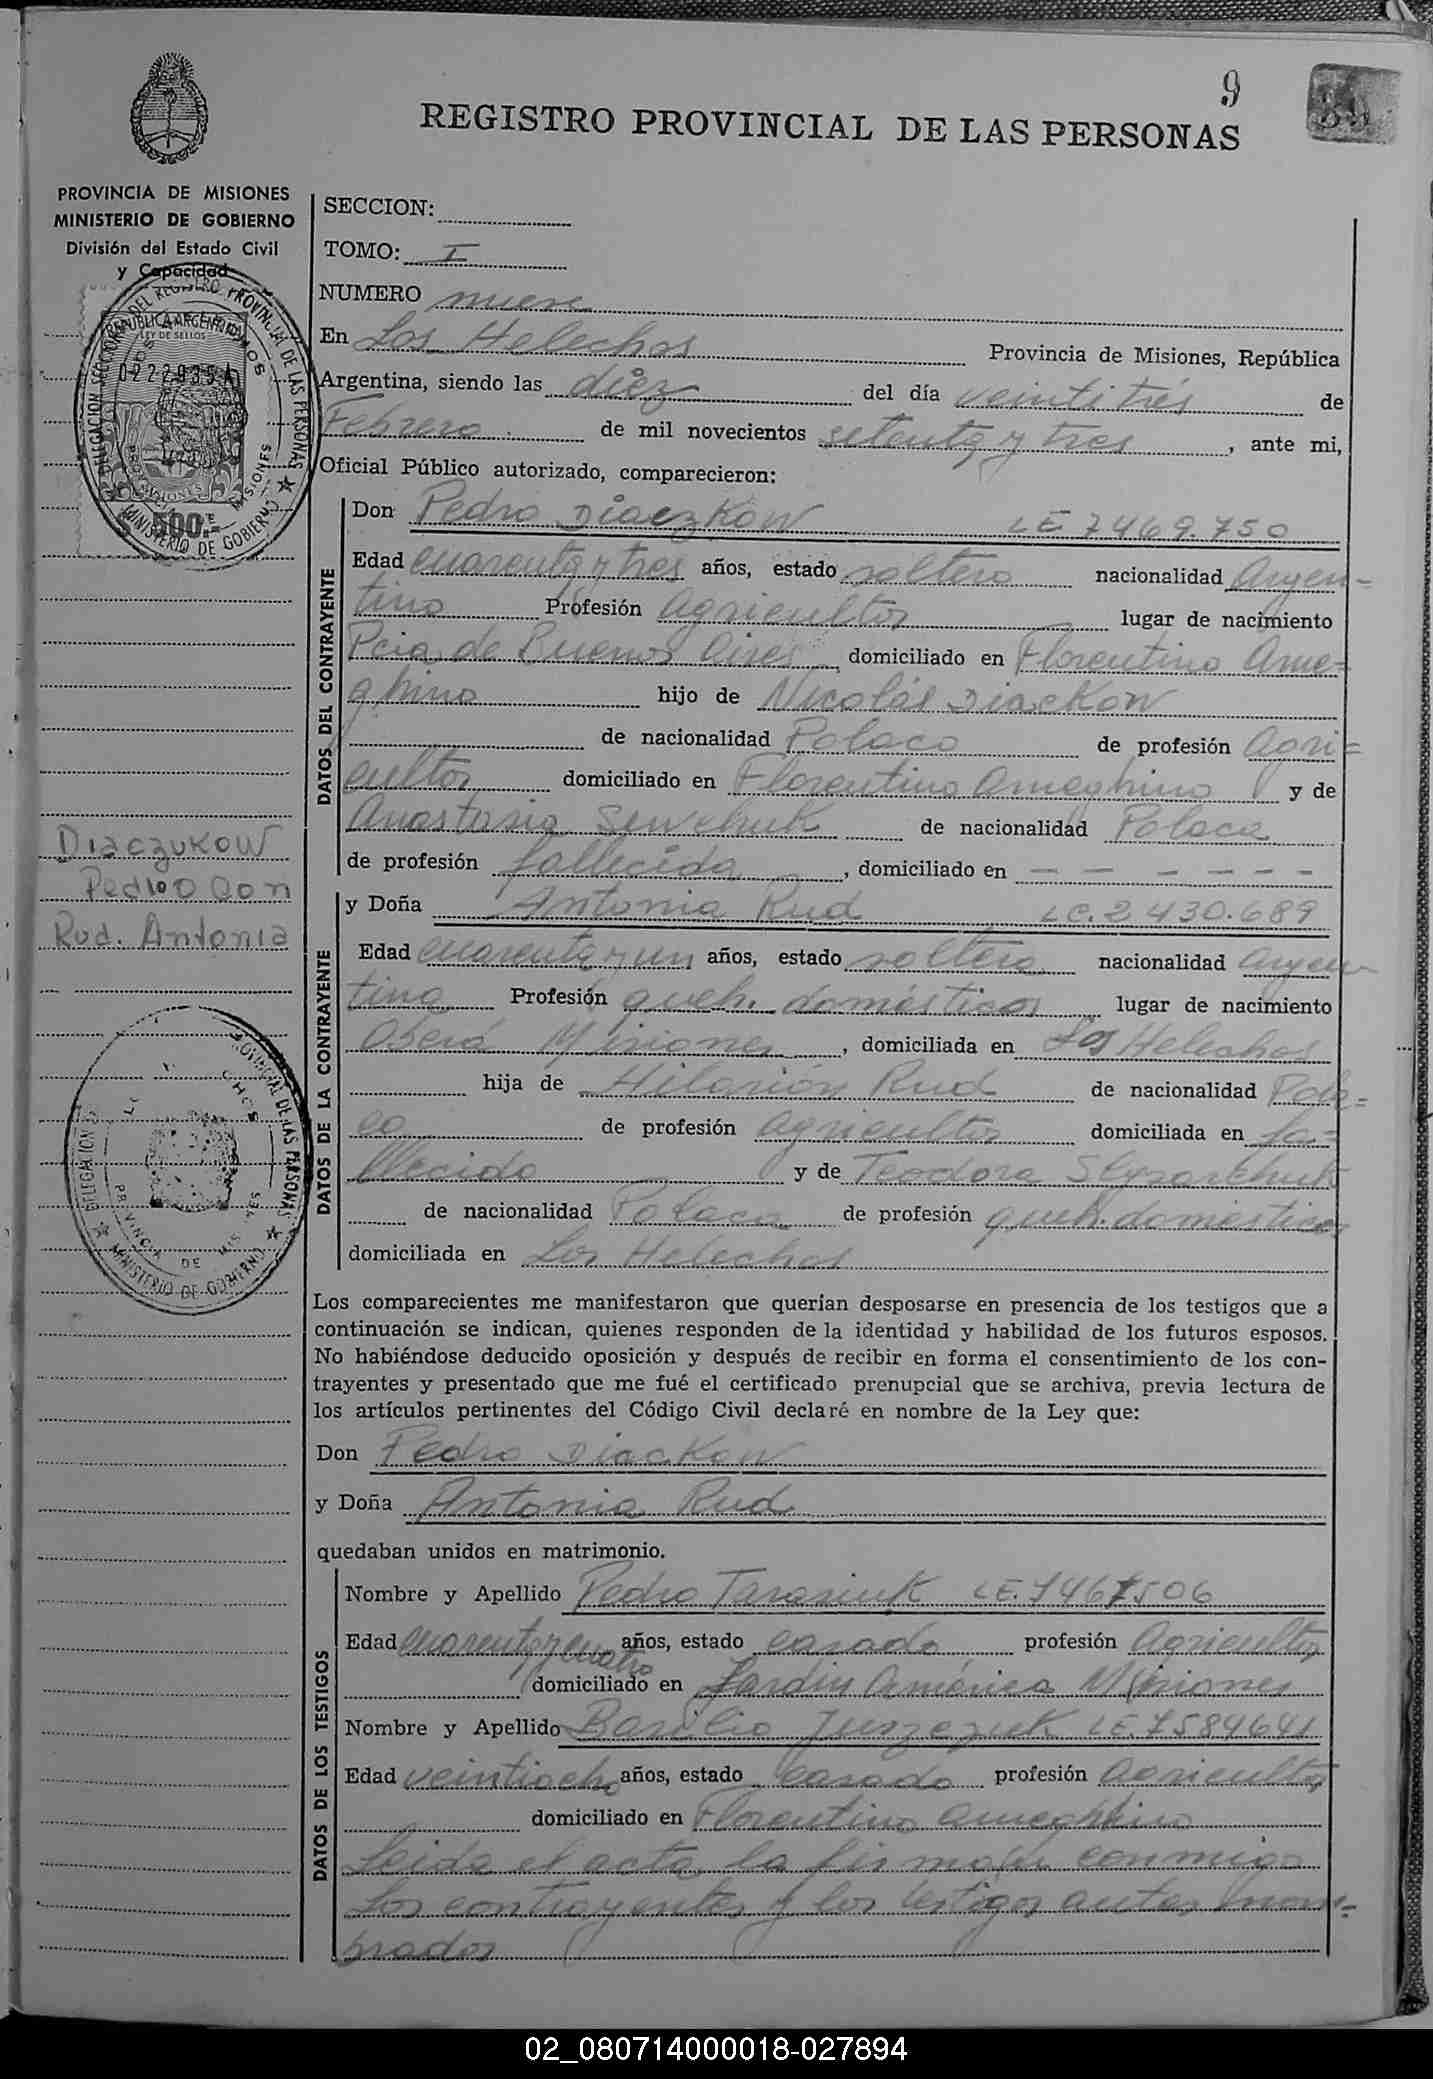 9
39
REGISTRO PROVINCIAL DE LAS PERSONAS
PROVINCIA DE MISIONES
MINISTERIO DE GOBIERNO
División del Estado Civil
y Capacidad
SECCION:
TOMO: I
NUMERO nueve
En Los Helechos Provincia de Misiones, República
Argentina, siendo las diez del día veintitrés de
Febrero de mil novecientos setenta y tres, ante mi,
Oficial Público autorizado, comparecieron:
DATOS DEL CONTRAYENTE
Don Pedro Diaczkow LE 7469.750
Edad cuarenta y tres años, estado soltero nacionalidad Argen-
tino Profesión Agricultor lugar de nacimiento
Pcia de Buenos Aires, domiciliado en Florentino Ame-
ghino hijo de Nicolás Diackow
de nacionalidad Polaco de profesión Agri-
cultor domiciliado en Florentino Ameghino y de
Anastasia Sewchuk de nacionalidad Polaca
de profesión fallecida, domiciliado en - - - - - -
DATOS DE LA CONTRAYENTE
y Doña Antonia Rud LC. 2 430.689
Edad cuarenta y un años, estado soltera nacionalidad Argen
tina Profesión queh. domésticos lugar de nacimiento
Oberá Misiones, domiciliada en Los Helechos
hija de Hilarión Rud de nacionalidad Pola-
co de profesión Agricultor domiciliada en fa-
llecido y de Teodora Slyzarchuk
de nacionalidad Polaca de profesión queh. domésticos
domiciliada en Los Helechos
Diaczukow
Pedro con
Rud. Antonia
REPUBLICA ARGENTINA
LEY DE SELLOS
0222935 A
$ 500.-
DELEGACION SECCIONAL DEL REGISTRO PROVINCIAL DE LAS PERSONAS
MINISTERIO DE GOBIERNO
PROVINCIA DE MISIONES
Los comparecientes me manifestaron que querían desposarse en presencia de los testigos que a
continuación se indican, quienes responden de la identidad y habilidad de los futuros esposos.
No habiéndose deducido oposición y después de recibir en forma el consentimiento de los con-
trayentes y presentado que me fué el certificado prenupcial que se archiva, previa lectura de
los artículos pertinentes del Código Civil declaré en nombre de la Ley que:
Don Pedro Diackow
y Doña Antonia Rud
quedaban unidos en matrimonio.
DATOS DE LOS TESTIGOS
Nombre y Apellido Pedro Tarasiuk LE. 7467506
Edad cuarenta y cuatro años, estado casado profesión Agricultor
domiciliado en Jardin América Misiones
Nombre y Apellido Basilio Juszezuk LE. 7584641
Edad veintiocho años, estado casado profesión Agricultor
domiciliado en Florentino Ameghino
Leida el acta, la firman conmigo
los contrayentes y los testigos antes nom-
brados
02_080714000018-027894